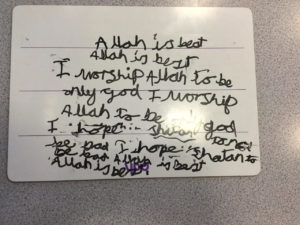 Allah is best
Allah is best
I worship Allah to be
only god I worship
Allah to be god
I hope Shatan
be bad I hope Shatan to
Allah is best Allah is best